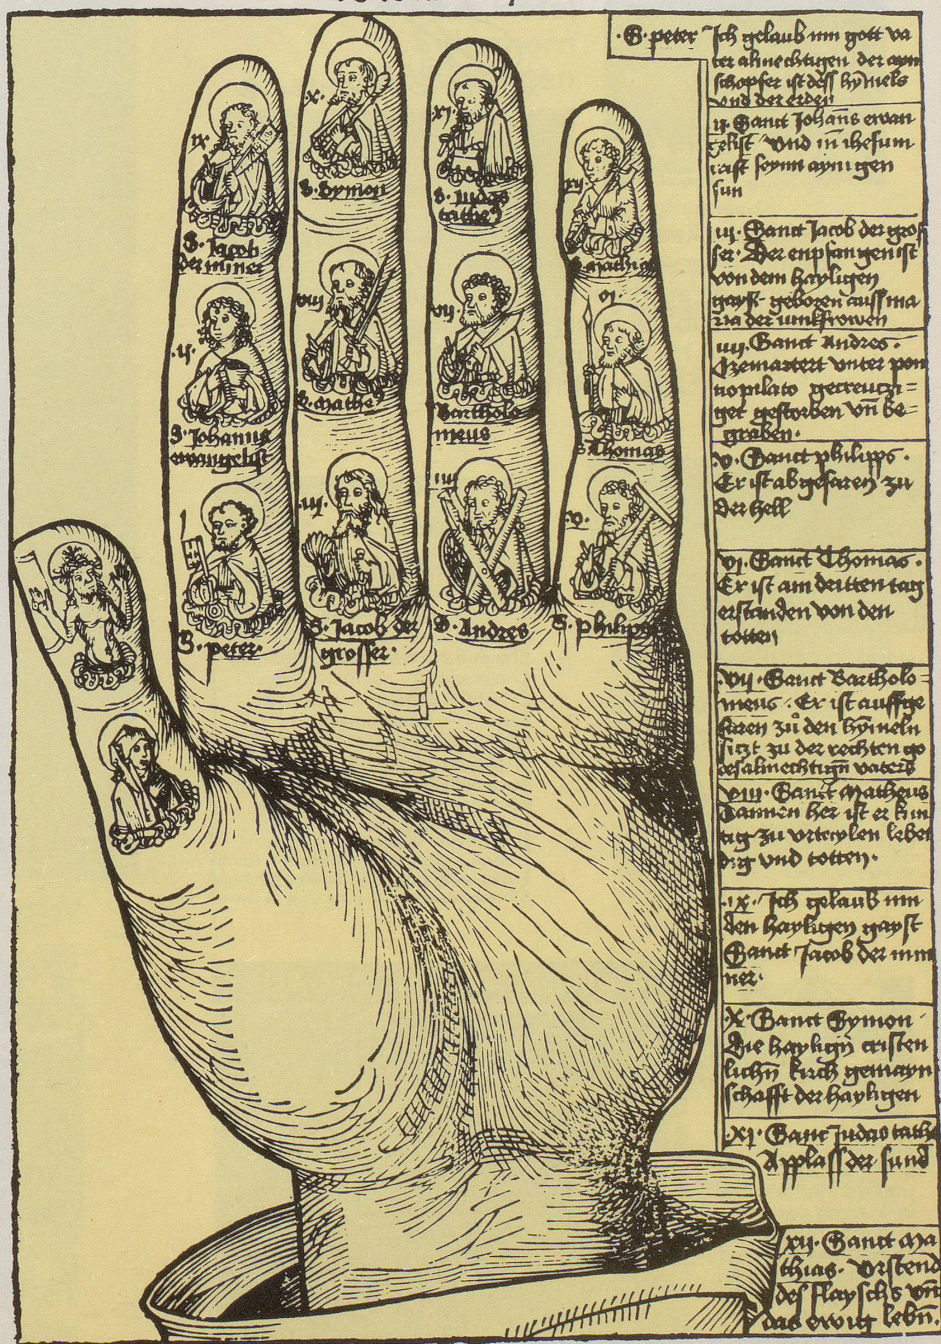 S. Jacob
der miner
S. Symon
S. Judas
tathe9
S. Mathias
S. Johannes
ewangelist
S. Mathe9
Bartholo
meus
S. Thomas
S. peter.
S. Jacob der
grosser.
S. Andres
S. Philipps
IX
X
XI
XII
II
VIII
VII
VI
I
III
IIII
V
.S. peter Ich gelaub inn gott va
ter almechtigen der ayn
schopfer ist dess hymels
vnd der erden
II Sanct Johans ewan
gelist Vnd in ihesum
crist seynn aynigen
sun
III. Sanct Jacob der gros
ser. Der enpfangen ist
von dem hayligen
gayst. geboren auss ma
ria der iunkfrowen
IIII. Sanct Andres.
Gemartert vnter pon
tiopilato gecreutzi=
get gestorben vn̄ be-
graben.
V. Sanct philipps.
Er ist abgefaren zu
der hell
VI. Sanct Thomas.
Er ist am dritten tag
erstanden von den
totten
VII. Sanct Bartholo=
meus. Er ist auffge
faren zů den hymeln
siczt zu der rechten go
des almechtign̄ vaters
VIII. Sanct Matheus
Dannen her ist er kun
tig zu vrteylen leben
dig vnd totten.
.IX. Ich gelaub inn
den hayligen gayst
Sanct Jacob der min
ner.
.X. Sanct Symon
Die haylign̄ cristen
lichn̄ kirch gemayn
schafft der hayligen
.XI. Sanct Judas tathe
Applass der sund
XII. Sanct Ma
thias. Vrstend
des flayschs vn̄
das ewig lebn̄.